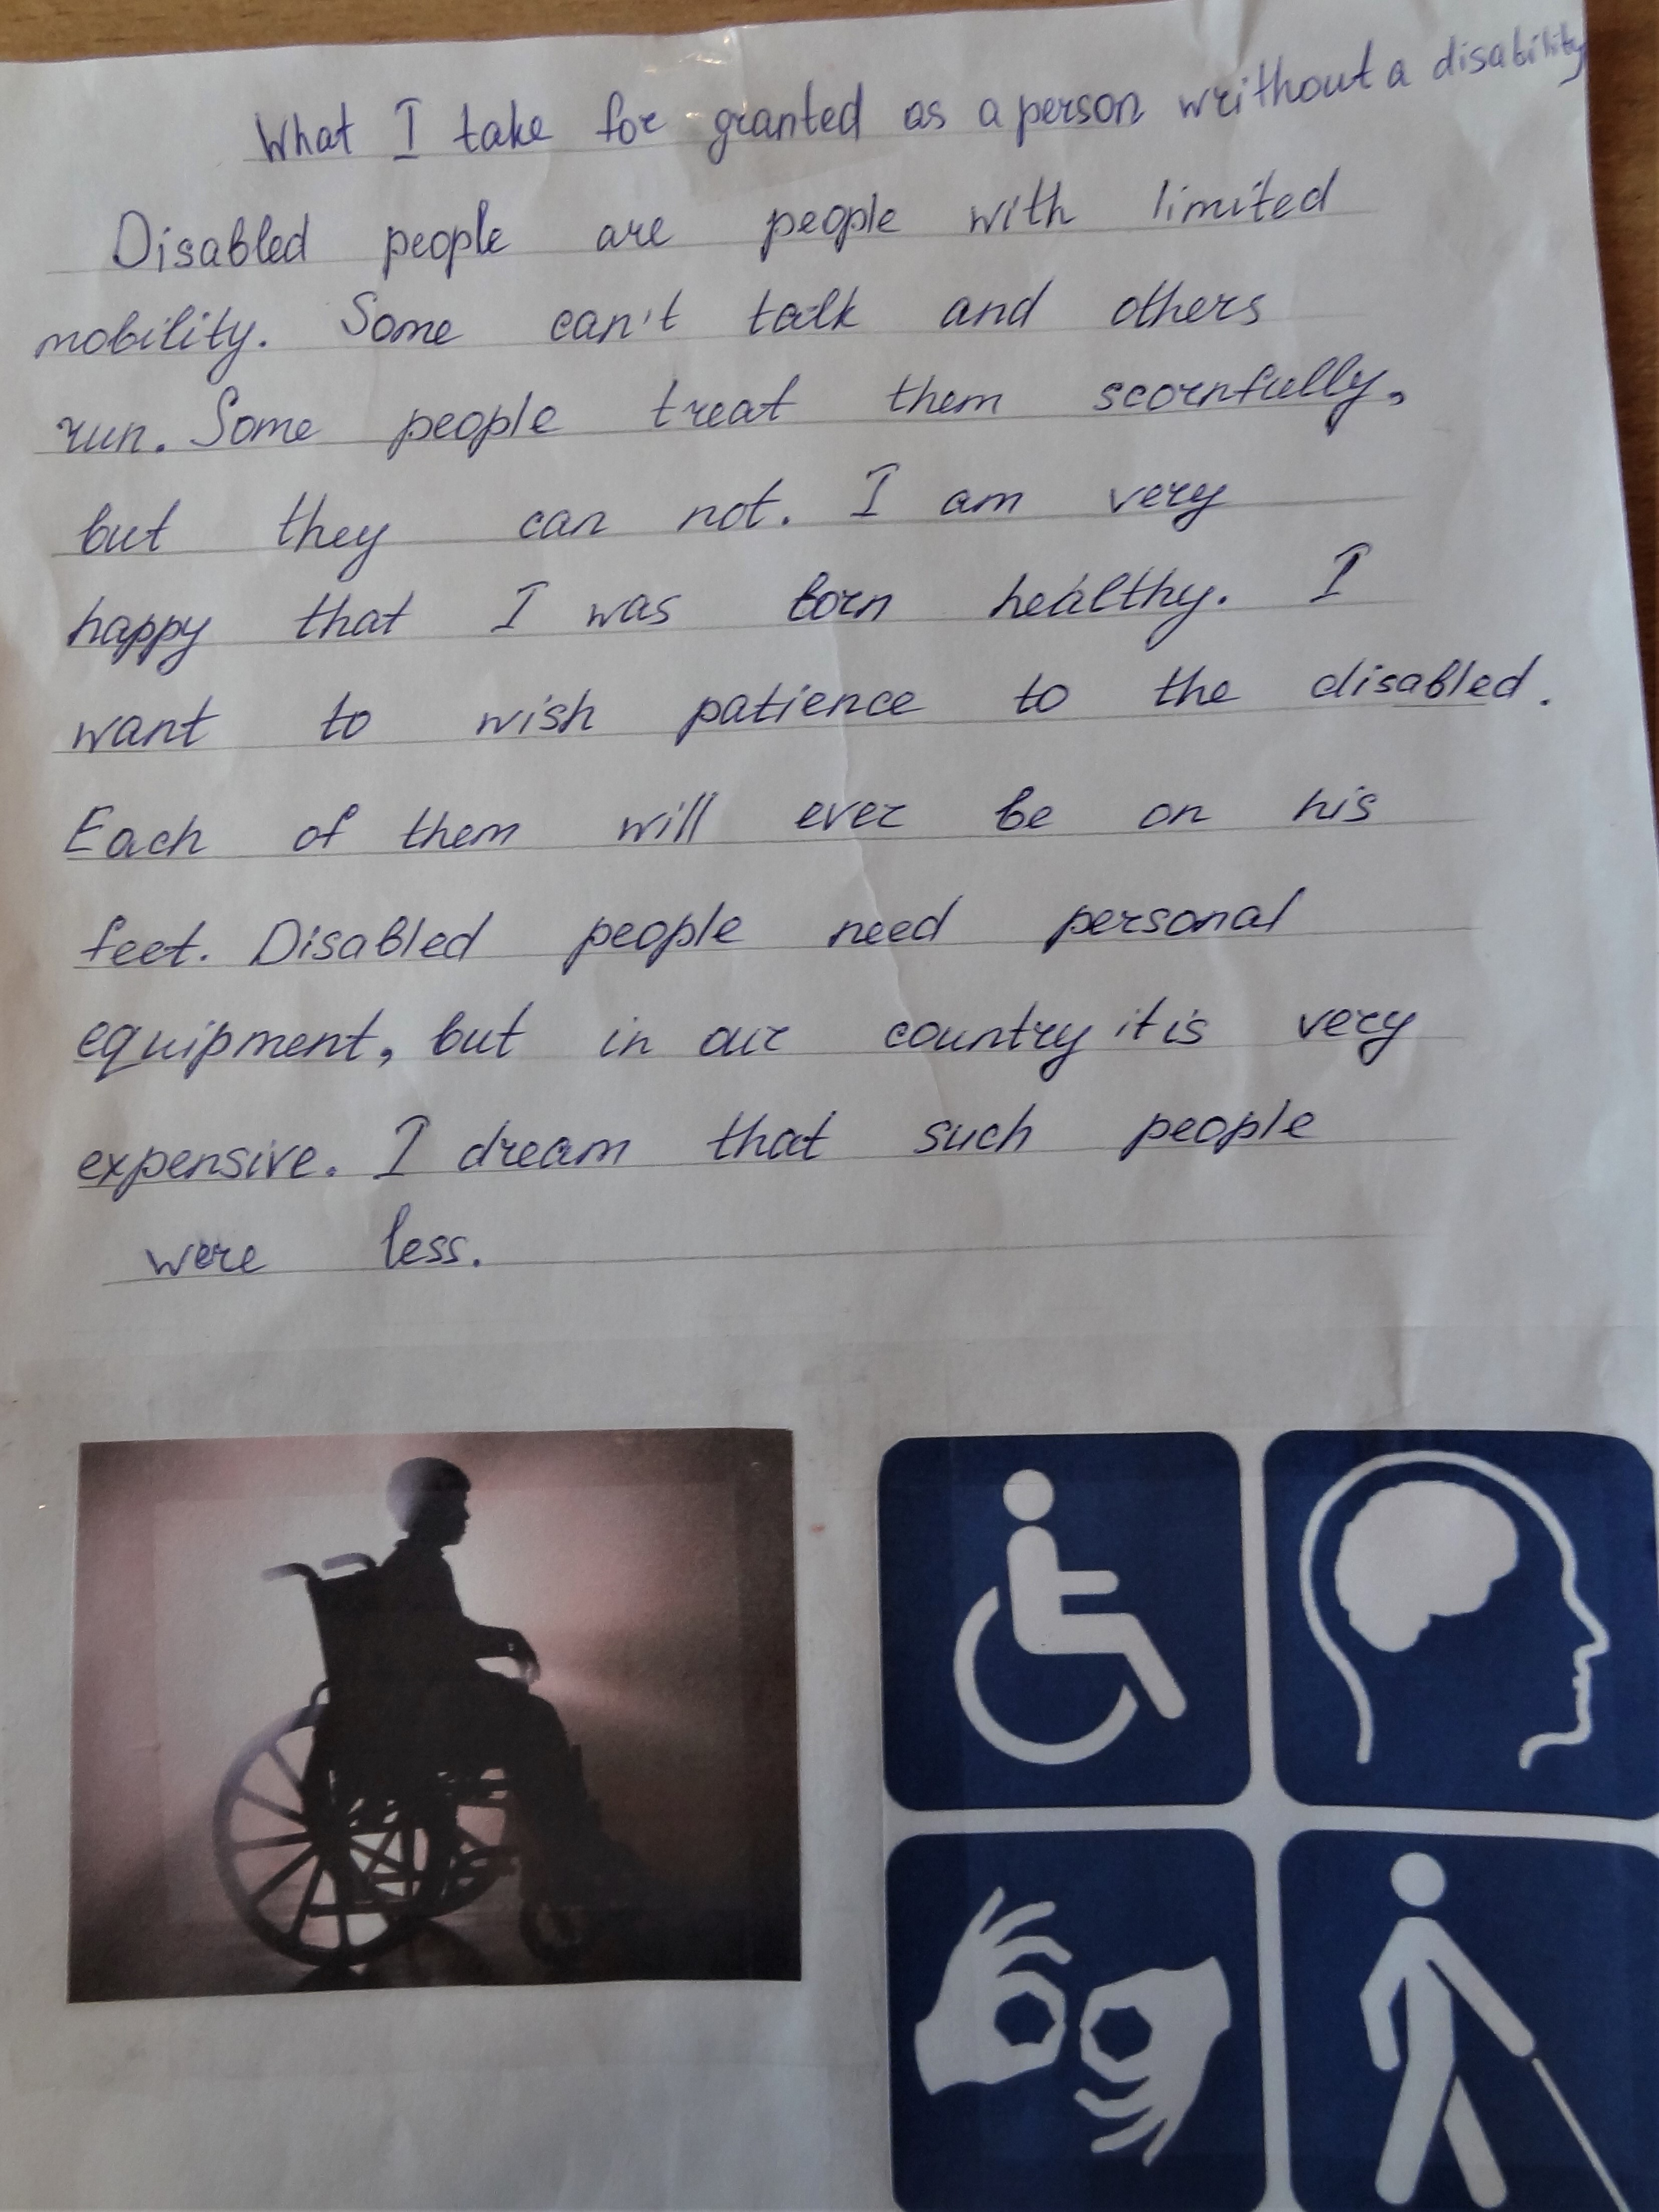 What I take for granted as a person writhout a disability
Disabled people are people with limited
mobility. Some can't talk and others
run. Some people treat them scornfully,
but they can not. I am very
happy that I was born healthy. I
want to wish patience to the disabled.
Each of them will ever be on his
feet. Disabled people need personal
equipment, but in our country it is very
expensive. I dream that such people
were less.